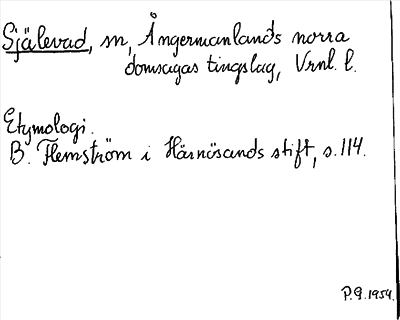 Själevad, sn, Ångermanlands norra
domsagas tingslag, Vrnl. l.
Etymologi.
B. Flemström i Härnösands stift, s. 114.
P.G. 1954.